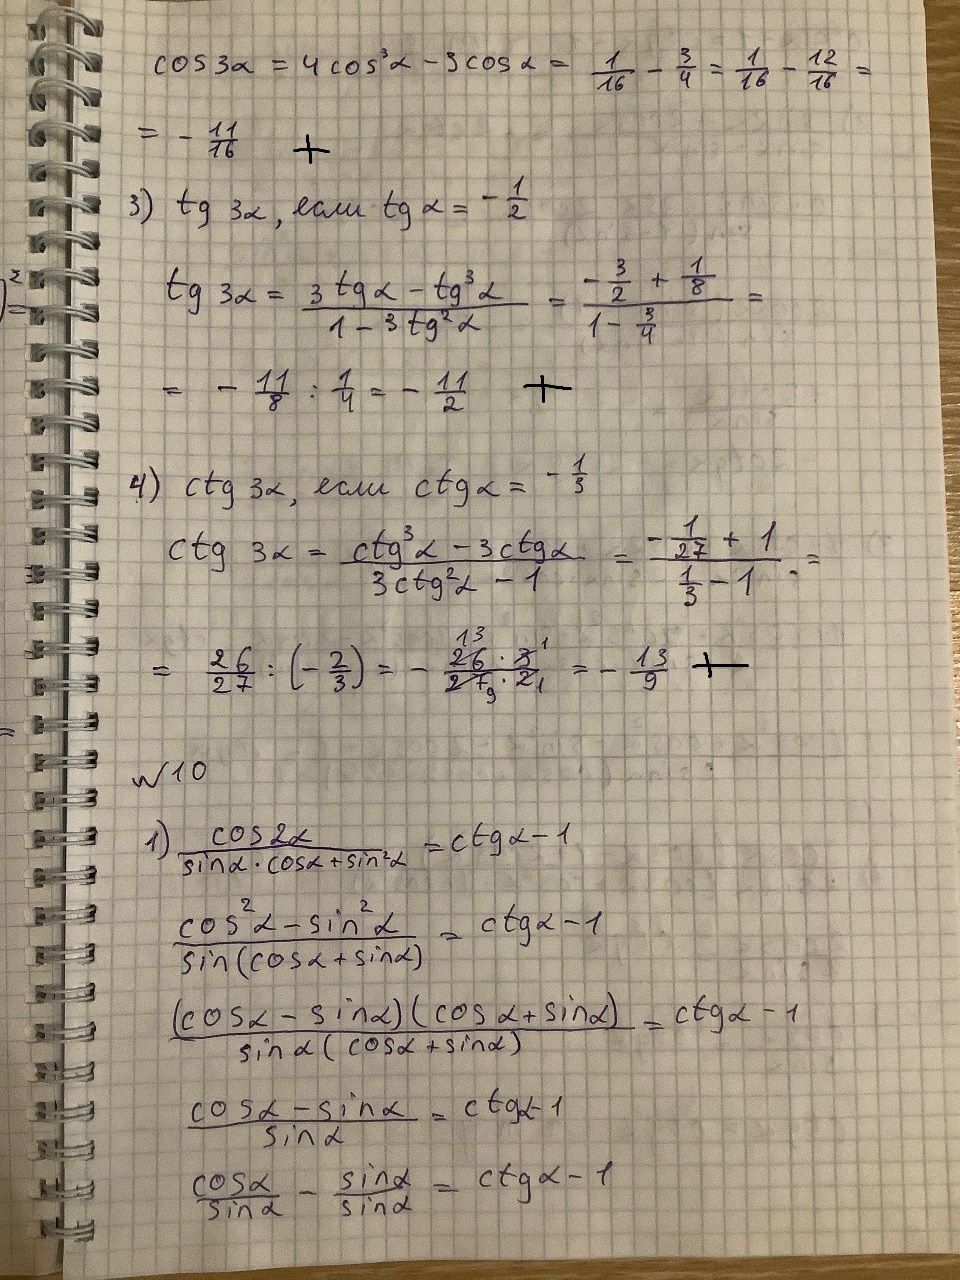 cos 3α = 4 cos³α − 3 cos α = 1/16 − 3/4 = 1/16 − 12/16 =
= − 11/16 +
3) tg 3α, если tg α = − 1/2
tg 3α = (3 tg α − tg³α)/(1 − 3 tg²α) = (− 3/2 + 1/8)/(1 − 3/4) =
= − 11/8 : 1/4 = − 11/2 +
4) ctg 3α, если ctg α = − 1/3
ctg 3α = (ctg³α − 3 ctg α)/(3 ctg²α − 1) = (− 1/27 + 1)/(1/3 − 1) =
= 26/27 : (− 2/3) = − (26 13 · 3 1)/(27 9 · 2 1) = − 13/9 +
№10
1) cos 2α/(sin α · cos α + sin²α) = ctg α − 1
(cos²α − sin²α)/(sin (cos α + sin α)) = ctg α − 1
(cos α − sin α)(cos α + sin α)/(sin α (cos α + sin α)) = ctg α − 1
(cos α − sin α)/sin α = ctg α − 1
cos α/sin α − sin α/sin α = ctg α − 1